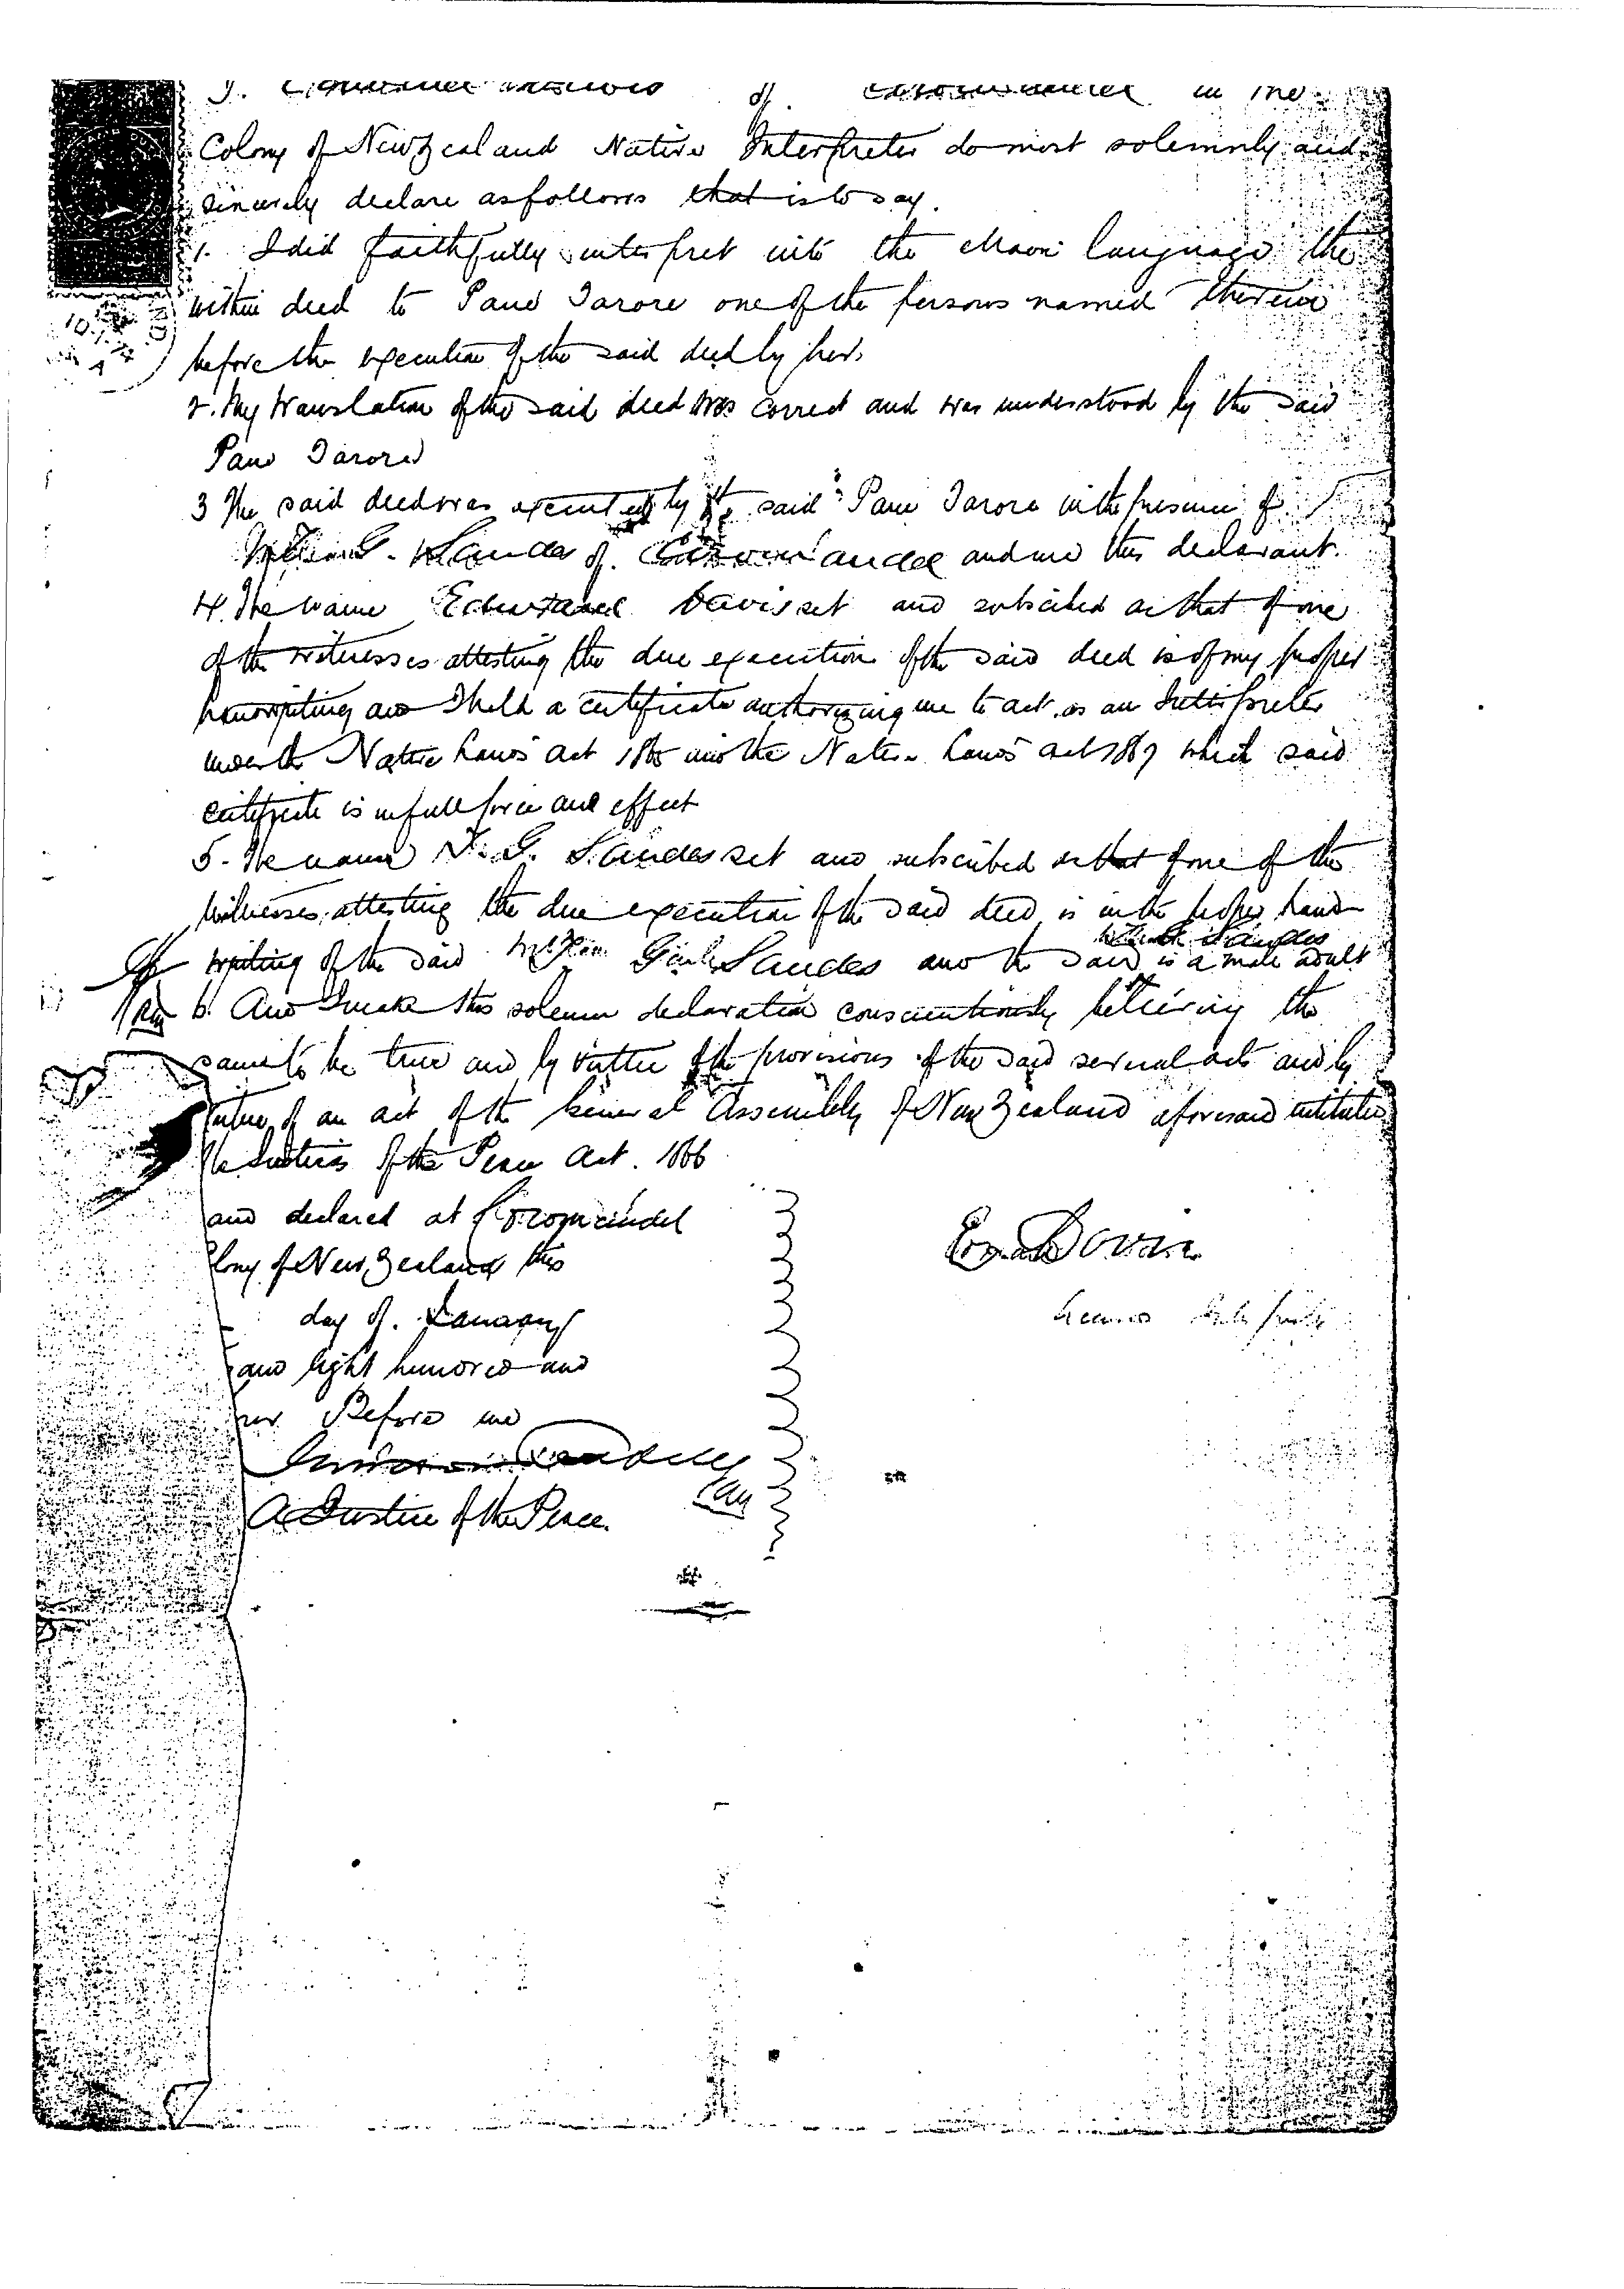 I. Edward Davis of Coromandel in the
Colony of New Zealand Native Interpreter do most solemnly and
sincerely declare as follows that is to say.
1. I did faithfully interpret into the Maori language the
within deed to Pane Tarore one of the persons named therein
before the execution of the said deed by her.
2. My translation of the said deed was correct and was understood by the said
Pane Tarore
3 The said deed was executed by the said Pane Tarore in the presence of
William G. Sandes of Coromandel and me this declarant.
4. The name Edward Davis set and subscribed as that of one
of the witnesses attesting the due execution of the said deed is of my proper
handwriting and I hold a certificate authorizing me to act as an Interpreter
under the Native Lands Act 1865 and the Native Lands Act 1867 which said
certificate is in full force and effect
5. The name G. Sandes set and subscribed as that of one of the
witnesses attesting the due execution of the said deed is in the proper hand
Sandes
writing of the said William Sandes and the said is a male adult
6. And I make this solemn declaration conscientiously believing the
same to be true and by virtue of the provisions of the said several acts and by
virtue of an act of the General Assembly of New Zealand aforesaid intituled
Justices of the Peace Act. 1866
and declared at Coromandel
lony of New Zealand this
day of January
and eight hundred and
Before me
A Justice of the Peace.
Davis
Licensed Interpreter